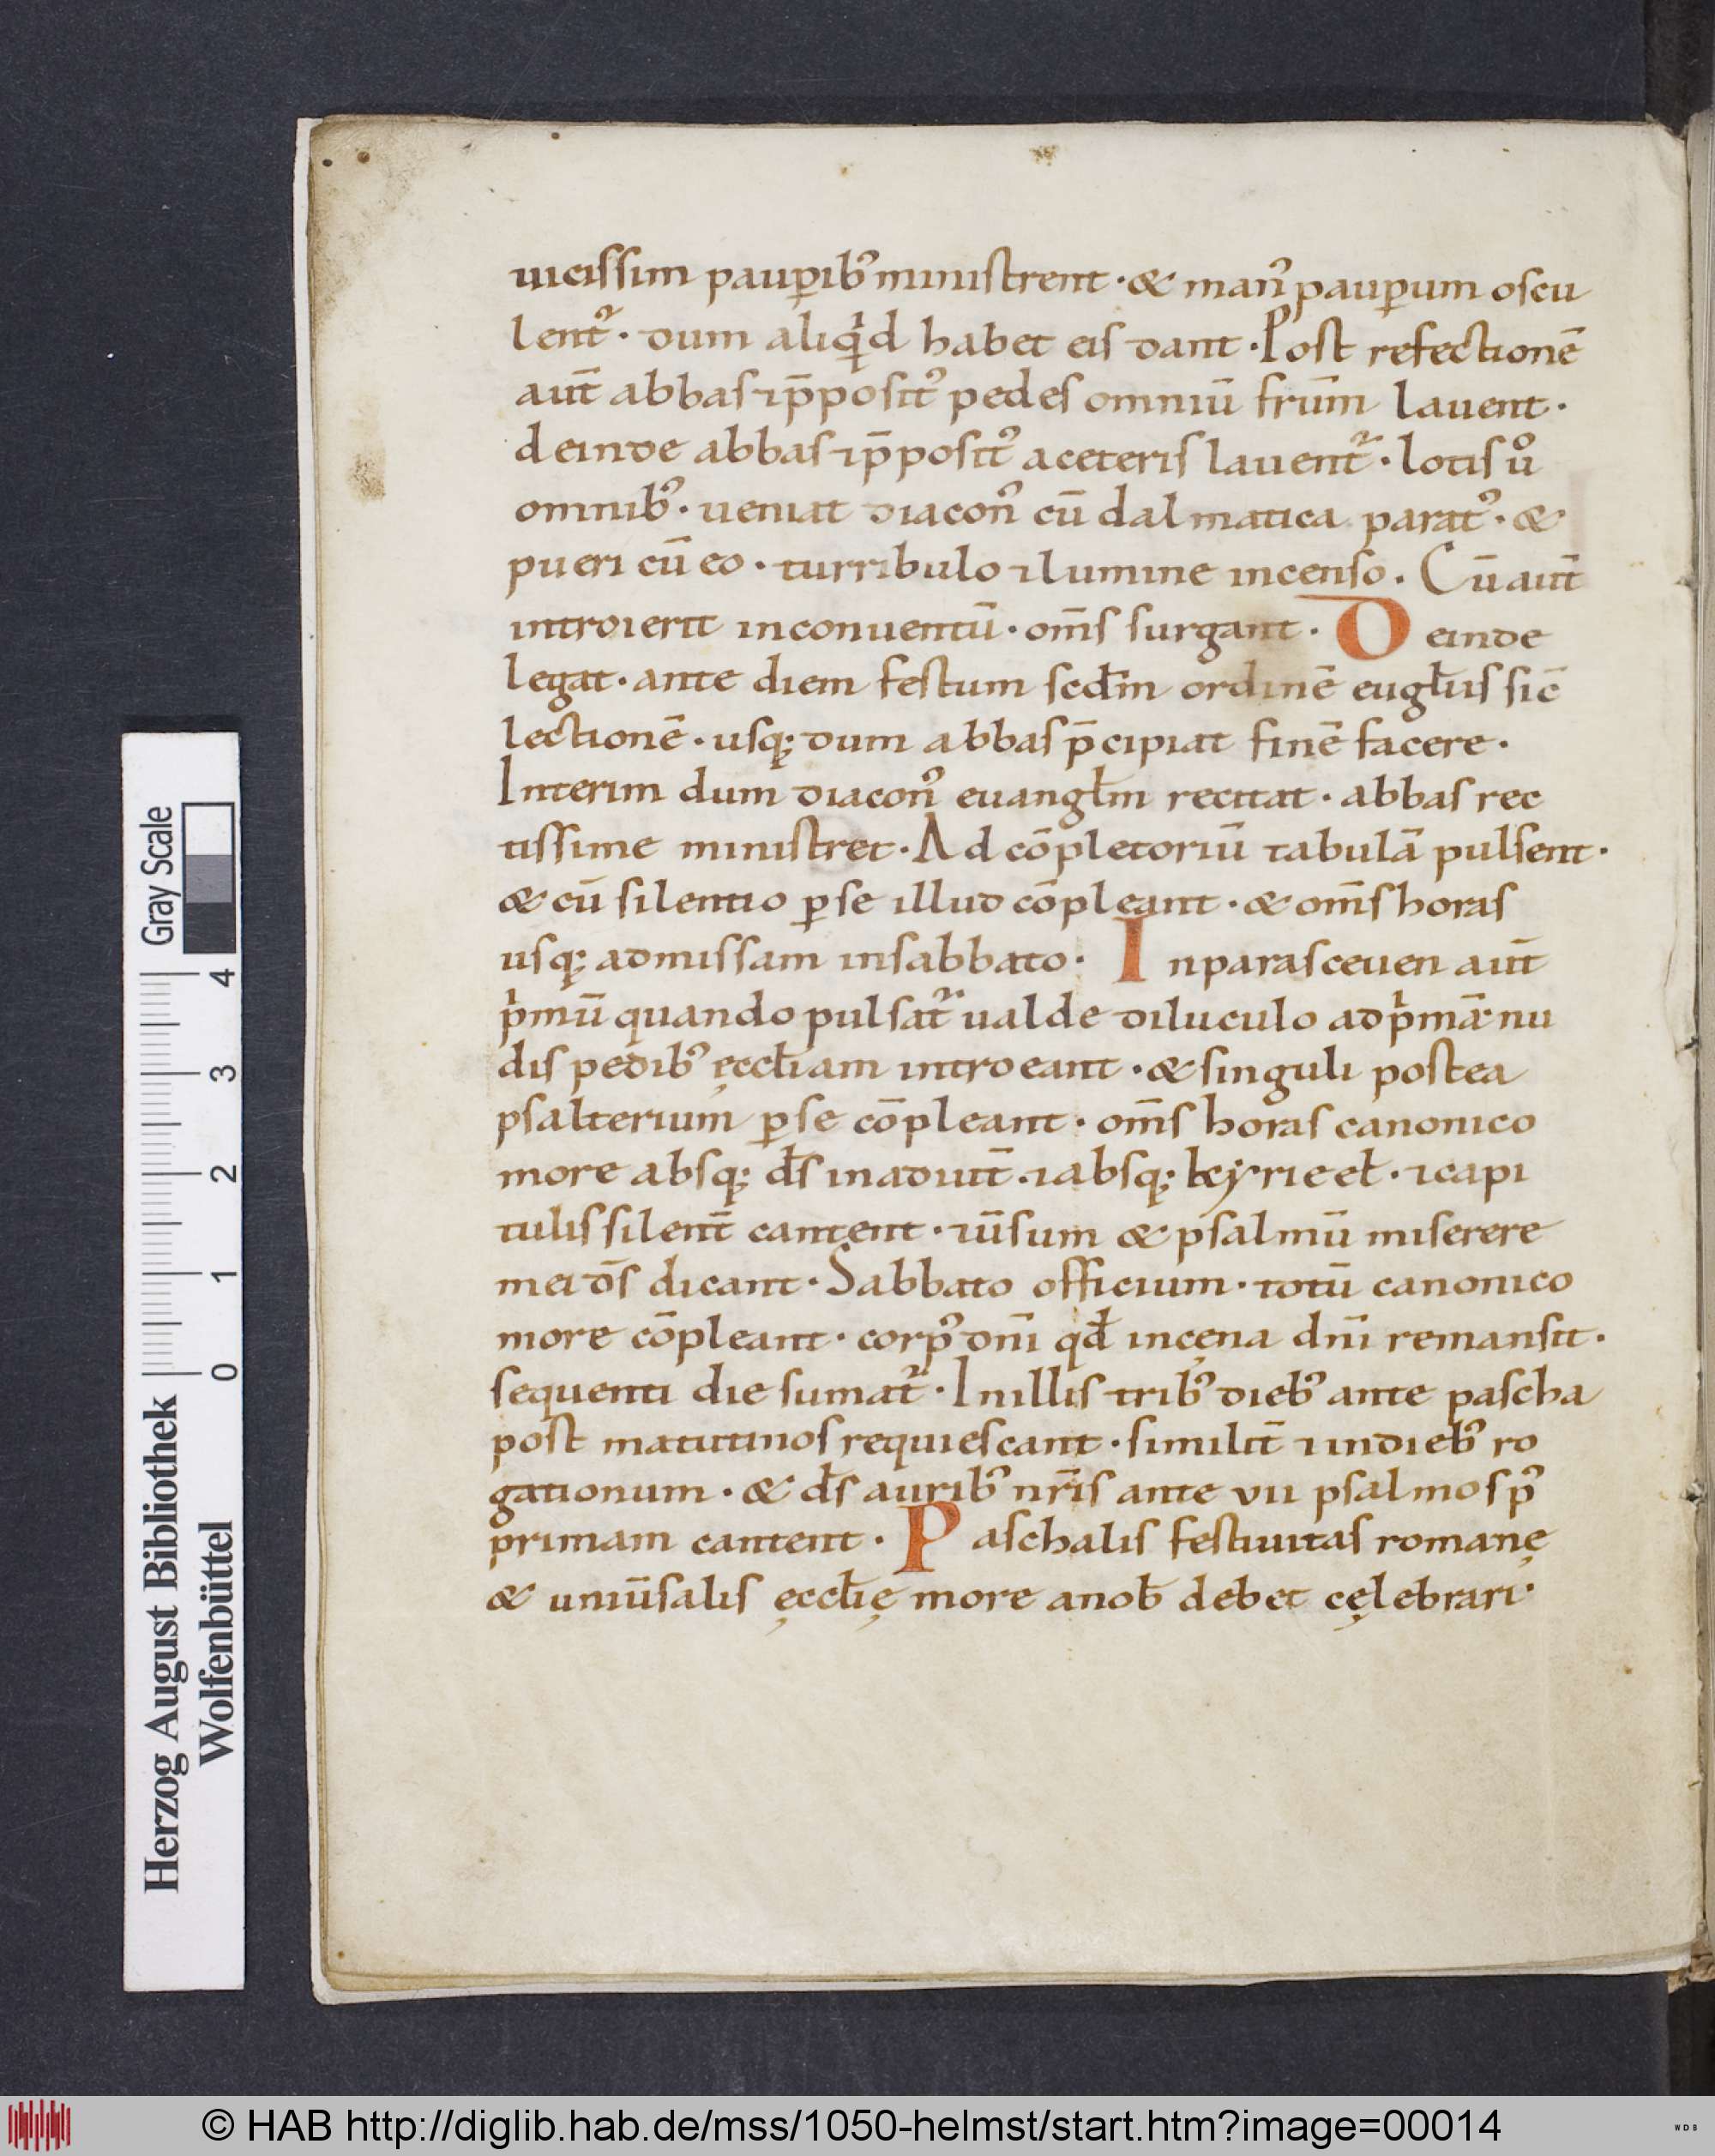 uicissim paup̱ibꝰ ministrent · & manꝰ paup̱um oscu
lent᷑ · dum aliqͥd habet eis dant · Post refectionē
aut̄ abbas ⁊ p̄posit᷒ pedes omniū fr̄um lauent ·
deinde abbas ⁊ p̄posit᷒ aceteris lauent᷑ · lotis uͦ
omnibꝰ · ueniat diaconꝰ cū dalmatica paratꝰ · &
pueri cū eo · turribulo ⁊ lumine incenso · Cū aut̄
introierit inconuentū · om̄s surgant · Deinde
legat · ante diem festum scd̄m ordinē eugl̄iis sic̄
lectionē · usq; dum abbas p̄cipiat finē facere ·
Interim dum diaconꝰ euangl̄m recitat · abbas rec
tissime ministret · Ad cōpletoriū tabulā pulsent ·
& cū silentio ꝑ se illud cōpleant · & om̄s horas
usq; admissam insabbato · Inparasceuen aut̄
pͥmū quando pulsat᷑ ualde diluculo adpͥmā · nu
dis pedibꝰ ęccl̄iam introeant · & singuli postea
psalterium ꝑ se cōpleant · om̄s horas canonico
more absq; d̄s inadiut̄ · ⁊ absq; kyrieel̄ · ⁊ capi
tulis silent̄ cantent · ⁊ ūsum & psalmū miserere
mei d̄s dicant · Sabbato officium · totū canonico
more cōpleant · corpꝰ dn̄i qd̄ incęna dn̄i remansit ·
sequenti die sumat᷑ · Inillis tribꝰ diebꝰ ante pascha
post matutinos requiescant · similit̄ ⁊ indiebꝰ ro
gationum · & d̄s auribꝰ nr̄is ante vii psalmos pꝰ
primam cantent · Paschalis festiuitas romanę
& uniūsalis ęccl̄ię more anob̄ debet cęlebrari ·
Gray Scale
4 3 2 1 0
Herzog August Bibliothek
Wolfenbüttel
© HAB http://diglib.hab.de/mss/1050-helmst/start.htm?image=00014
WDB